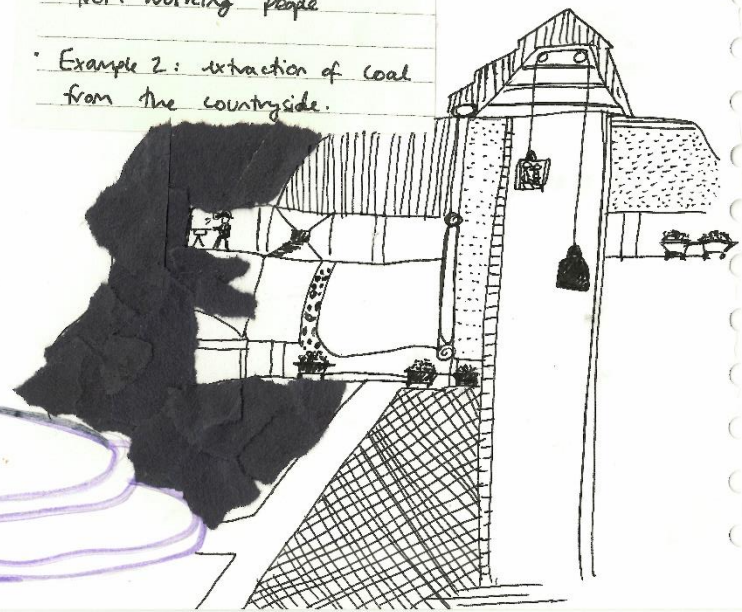 from working people
• Example 2: extraction of coal
from the countryside.